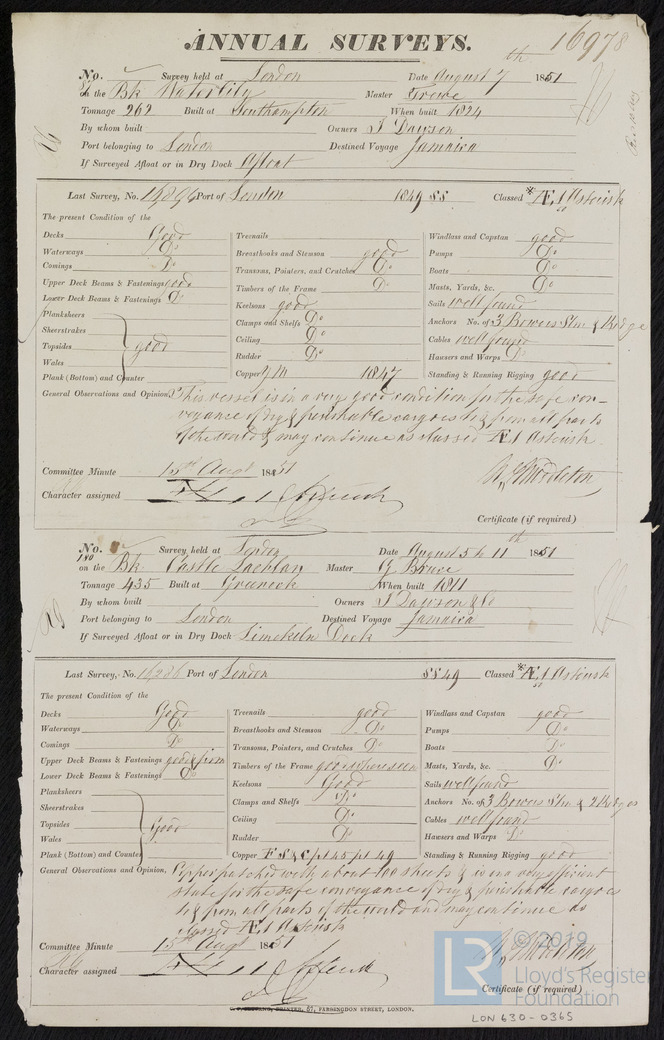 ANNUAL SURVEYS.
16978
No. Survey held at London Date August 7th 1851
on the Bk Waterlily Master
Tonnage 262 Built at Southampton When built 1824
By whom built Owners J Dawson
Port belonging to London Destined Voyage Jamaica
If Surveyed Afloat or in Dry Dock Afloat
Last Survey, No. Port of London 1849 SS Classed *Æ.1 Asterisk
The present Condition of the
Decks Good
Waterways Do
Comings Do
Upper Deck Beams & Fastenings good
Lower Deck Beams & Fastenings Do
Planksheers
Sheerstrakes
Topsides good
Wales
Plank (Bottom) and Counter
Treenails
Breasthooks and Stemson good
Transoms, Pointers, and Crutches Do
Timbers of the Frame Do
Keelsons good
Clamps and Shelfs Do
Ceiling Do
Rudder Do
Copper 1847
Windlass and Capstan good
Pumps Do
Boats Do
Masts, Yards, &c. Do
Sails well found
Anchors No. of 3 Bowers Stm & Kedge
Cables well found
Hawsers and Warps Do
Standing & Running Rigging good
General Observations and Opinion, This vessel is in a very good condition for the safe con-
veyance of dry & perishable cargoes to & from all parts
of the world & may continue as classed Æ 1 Asterisk
Committee Minute 15th Augt 1851
Character assigned
Certificate (if required)
No. Survey held at London Date August 5 & 11th 1851
180
on the Bk. Castle Lachlan Master G Bruce
Tonnage 435 Built at Greenock When built 1811
By whom built Owners J Dawson & Co
Port belonging to London Destined Voyage Jamaica
If Surveyed Afloat or in Dry Dock Limekiln Dock
Last Survey, No. Port of London SS 49 Classed *Æ.1 Asterisk
The present Condition of the
Decks Good
Waterways Do
Comings Do
Upper Deck Beams & Fastenings good &
Lower Deck Beams & Fastenings Do
Planksheers
Sheerstrakes
Topsides Good
Wales
Plank (Bottom) and Counter
Treenails good
Breasthooks and Stemson Do
Transoms, Pointers, and Crutches Do
Timbers of the Frame good where seen
Keelsons Good
Clamps and Shelfs Do
Ceiling Do
Rudder Do
Copper F S & C pt 45 pt 49
Windlass and Capstan good
Pumps Do
Boats Do
Masts, Yards, &c. Do
Sails well found
Anchors No. of 3 Bowers Stm & 2 Kedges
Cables well found
Hawsers and Warps Do
Standing & Running Rigging good
General Observations and Opinion, patched with about 100 sheets & is in a very efficient
state for the safe conveyance of dry & perishable cargoes
to & from all parts of the world and may continue as
classed Æ 1 Asterisk
Committee Minute 15th Augt 1851
Character assigned
Certificate (if required)
PRINTER, 87, FARRINGDON STREET, LONDON.
LR
© 2019
Lloyd's Register
Foundation
LON 630 - 0365